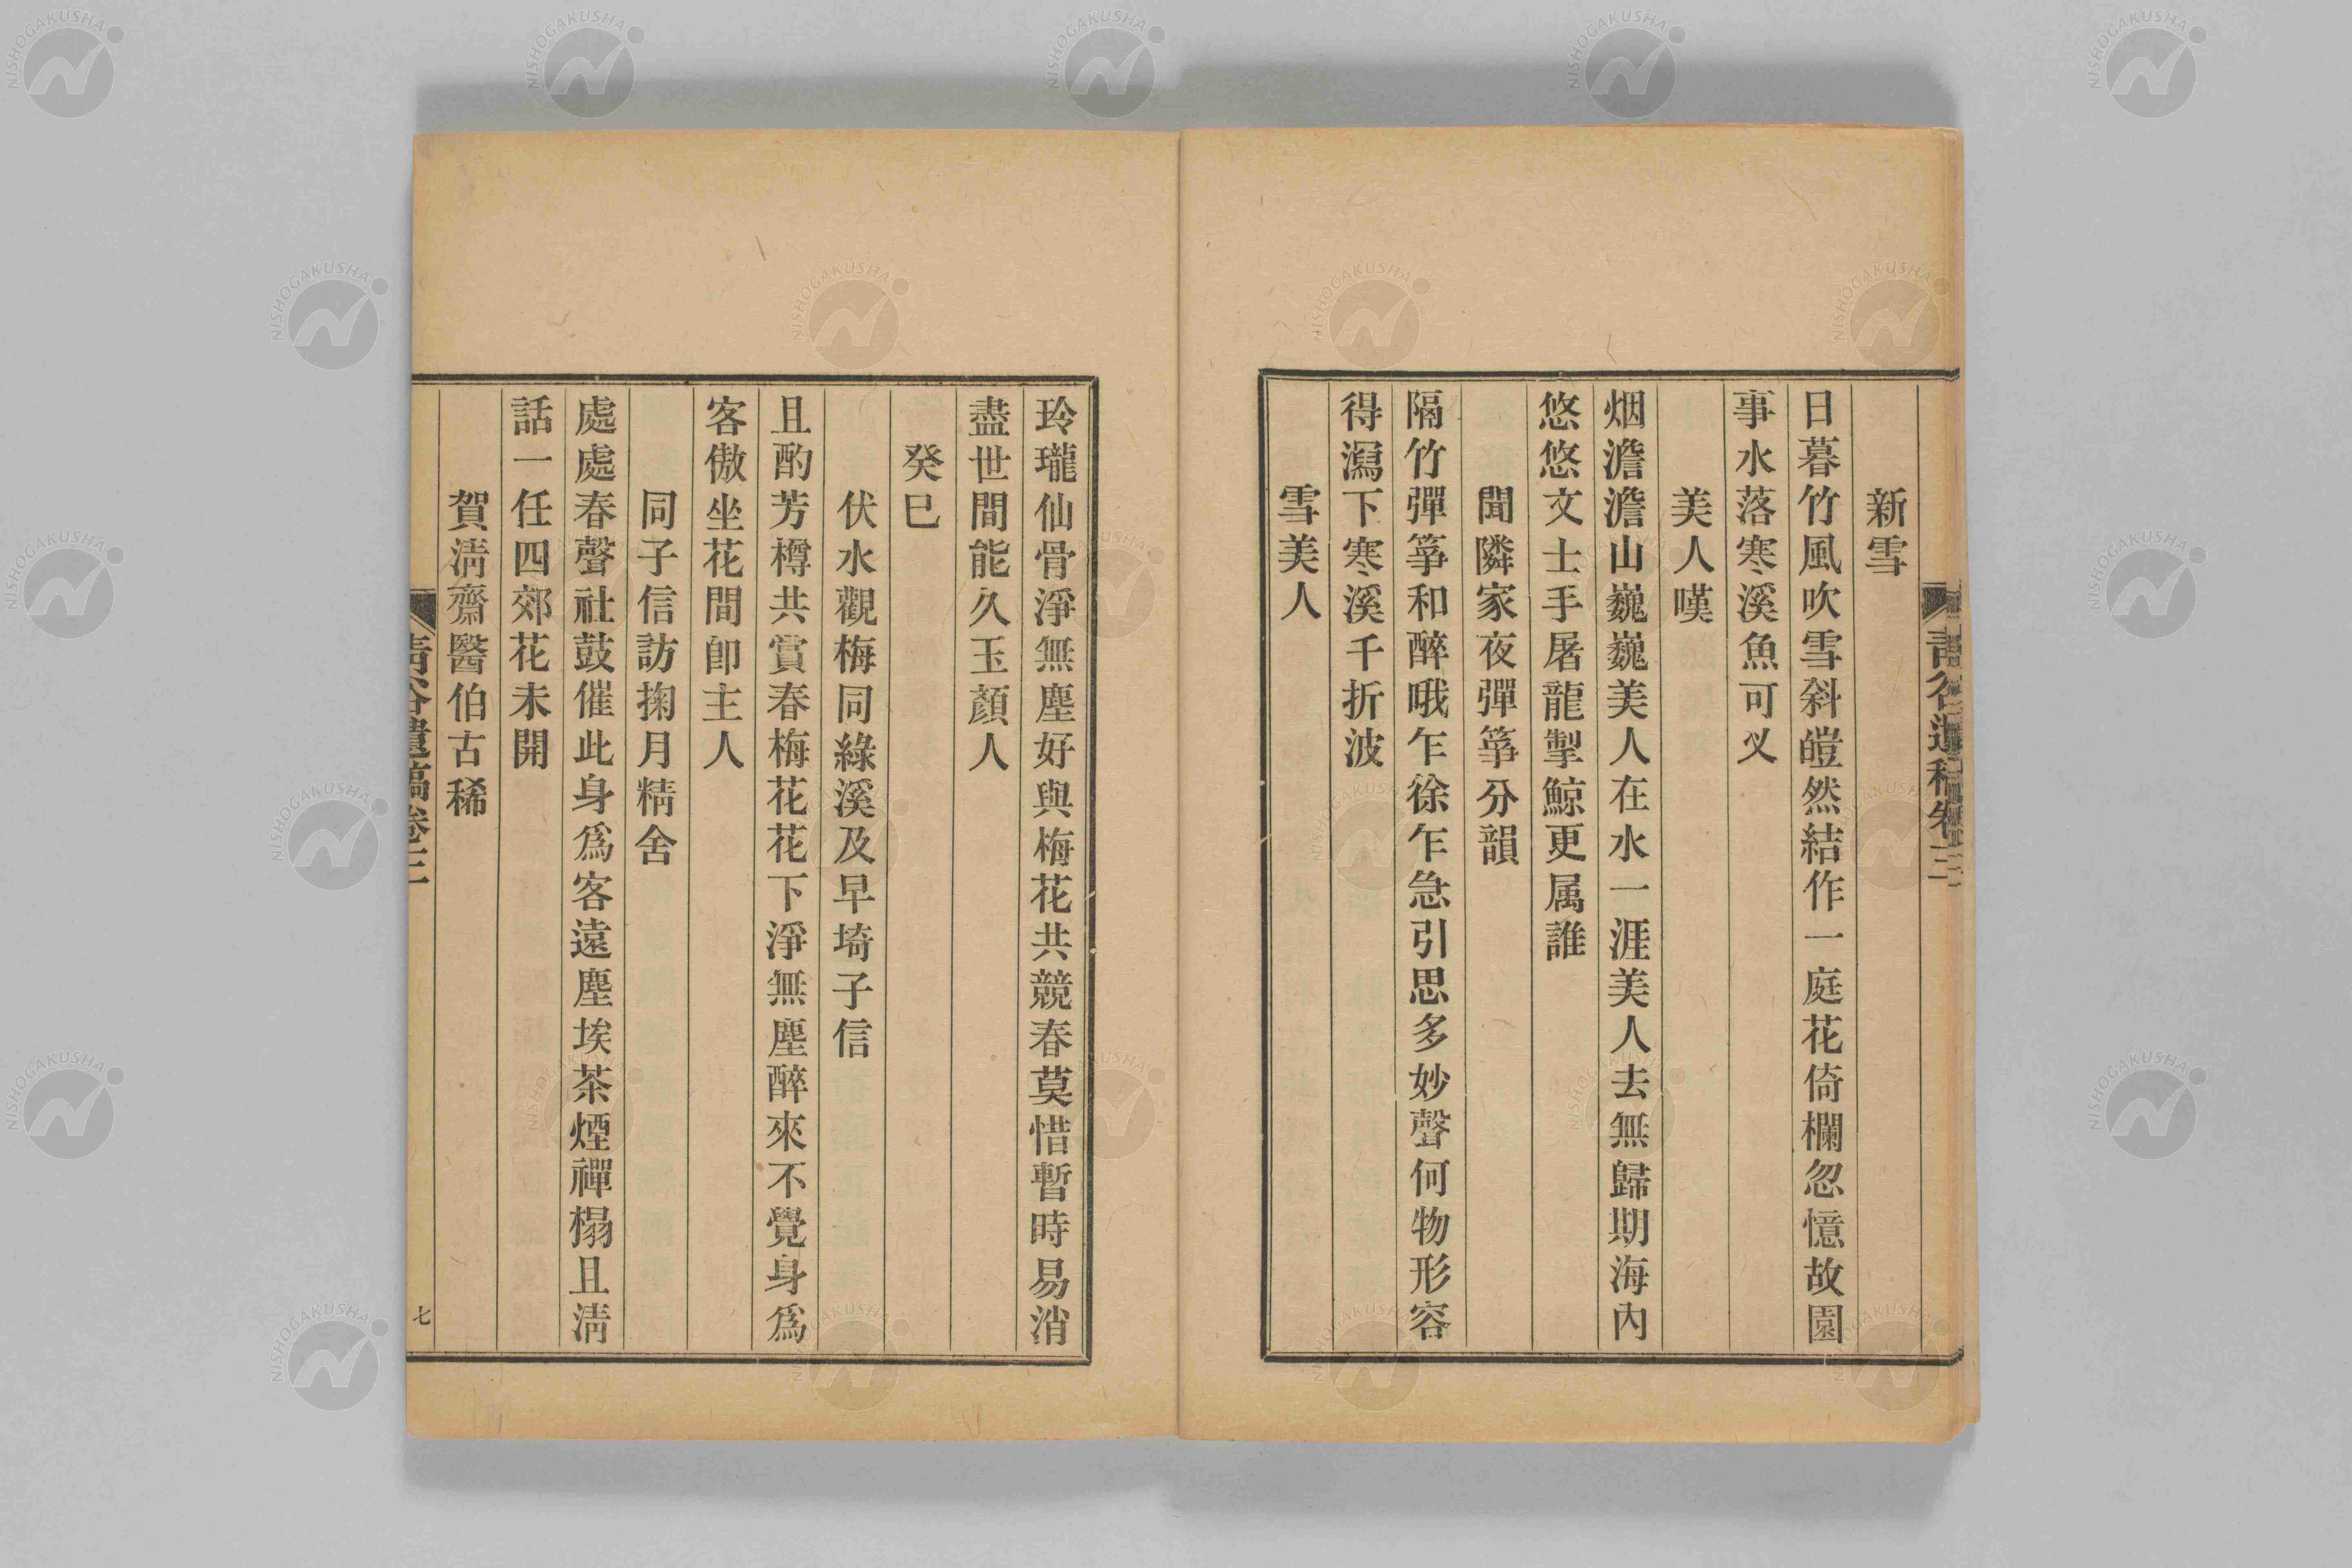 新雪
日暮竹風吹雪斜皚然結作一庭花倚欄忽憶故園
事水落寒溪魚可㕚
美人嘆
烟澹澹山巍巍美人在水一涯美人去無歸期海內
悠悠文士手屠龍掣鯨更属誰
聞隣家夜彈箏分韻
隔竹彈箏和醉哦乍徐乍急引思多妙聲何物形容
得瀉下寒溪千折波
雪美人
玲瓏仙骨淨無塵好與梅花共競春莫惜暫時易消
盡世間能久玉顏人
癸巳
伏水觀梅同綠溪及早埼子信
且酌芳樽共賞春梅花花下淨無塵醉來不覺身爲
客傲坐花間卽主人
同子信訪掬月精舍
處處春聲社鼓催此身爲客遠塵埃茶煙禪榻且淸
話一任四郊花未開
賀淸齋醫伯古稀
靑谷遺稿卷三
七
NISHOGAKUSHA